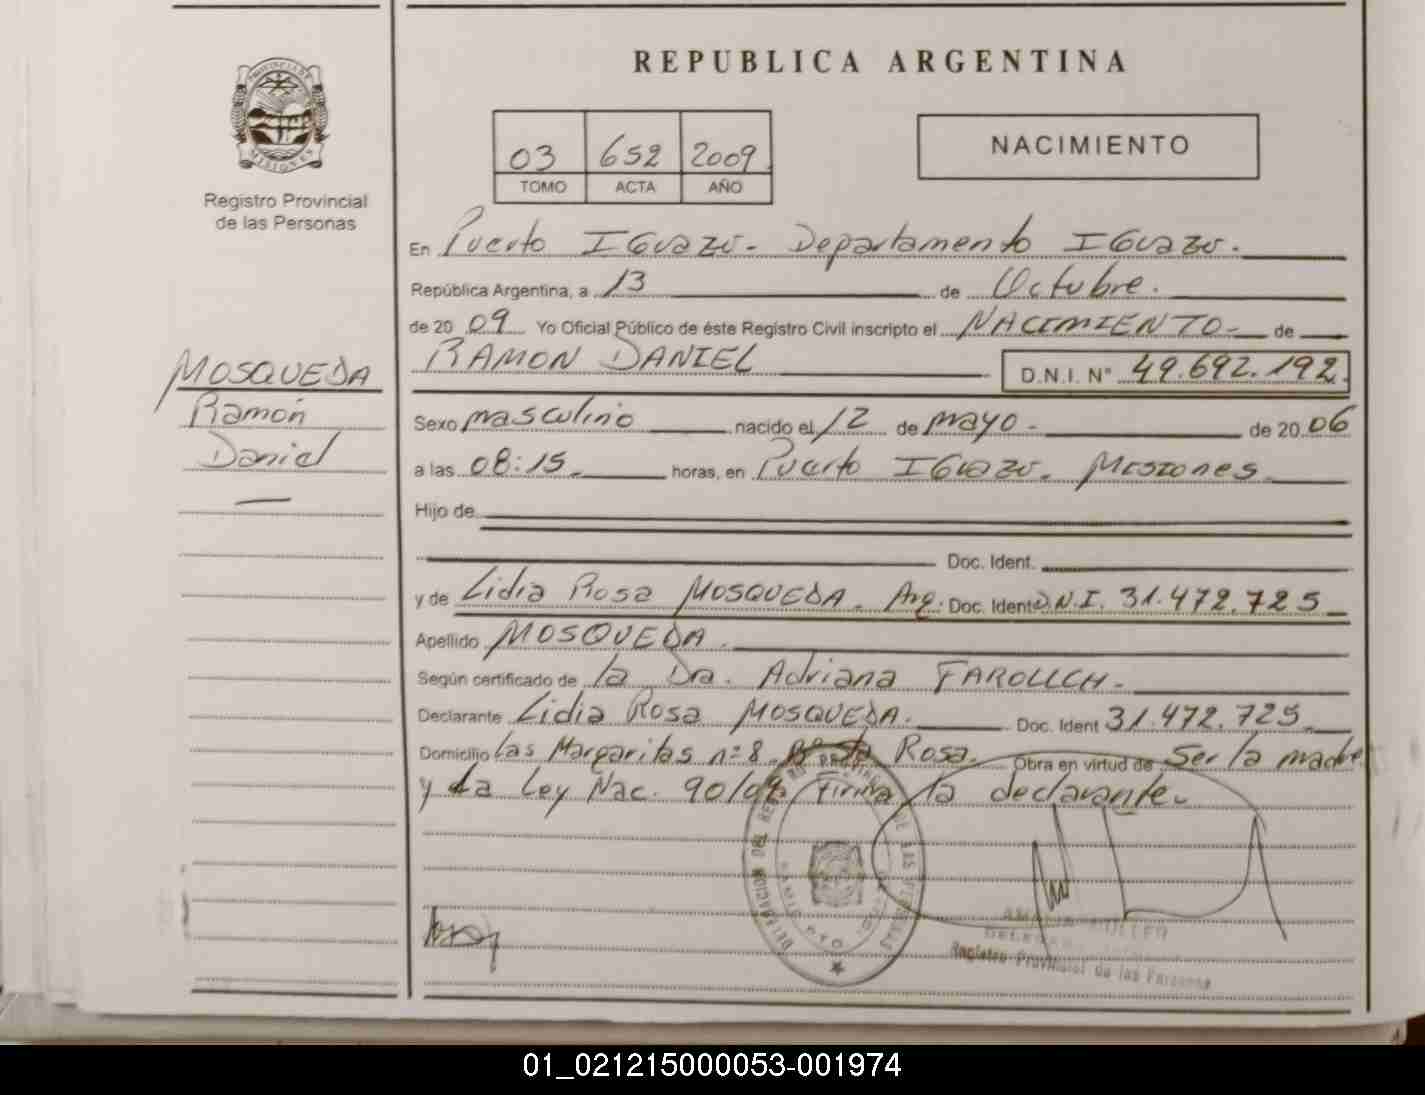 REPUBLICA ARGENTINA
PROVINCIA DE
MISIONES
Registro Provincial
de las Personas
03 652 2009
TOMO ACTA AÑO
NACIMIENTO
En Puerto IGuazú. Departamento IGuazú.
República Argentina, a 13 de Octubre.
de 20 09 Yo Oficial Público de éste Registro Civil inscripto el NACIMIENTO de
RAMON DANIEL D.N.I. N° 49.692.192.
MOSQUEDA
Ramón
Daniel
Sexo masculino nacido el 12 de mayo - de 20 06
a las 08:15. horas, en Puerto IGuazú. MISIONES.
Hijo de
Doc. Ident.
y de Lidia Rosa MOSQUEDA. Arg. Doc. Ident D.N.I. 31.472.725
Apellido MOSQUEDA.
Según certificado de la Dra. Adriana
Declarante Lidia Rosa MOSQUEDA. Doc. Ident 31.472.725
Domicilio Las Margaritas n=8 Rosa. Obra en virtud de Ser la madre
y La Ley Nac. 90/09, firma la declarante.
DELEGACION DEL REGISTRO PROVINCIAL DE LAS PERSONAS
Registro Provincial de las Personas
01_021215000053-001974